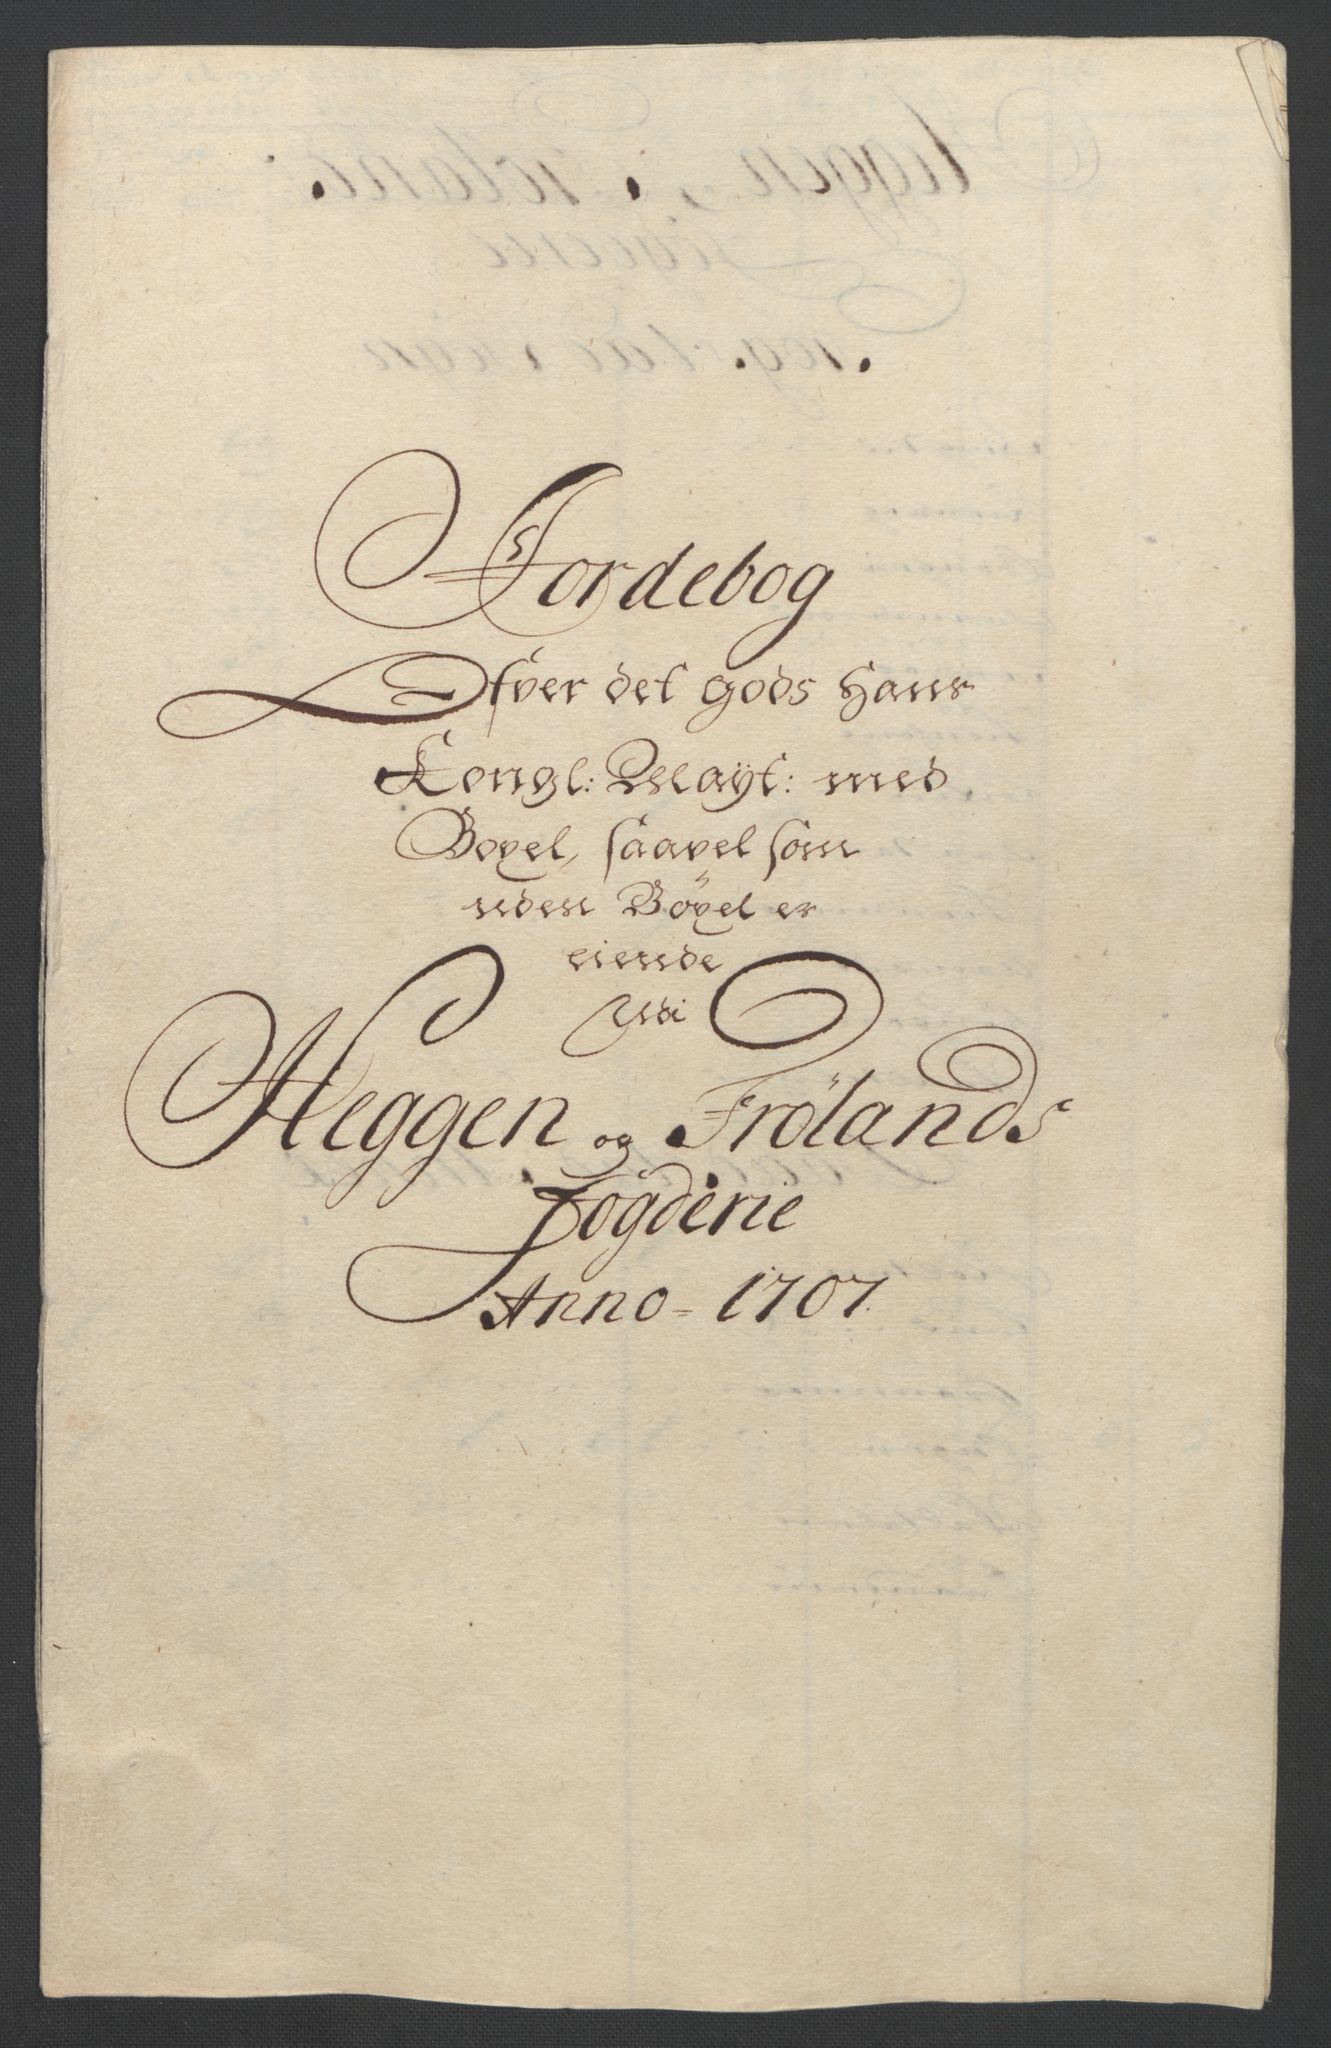 Jordebog
Ofver det gods Hans
Kongl: Mayt: med
Boxel, saavel som
uden Böxel er
eiende
udi
Heggen og Frölands
Fogderie
Anno - 1707.